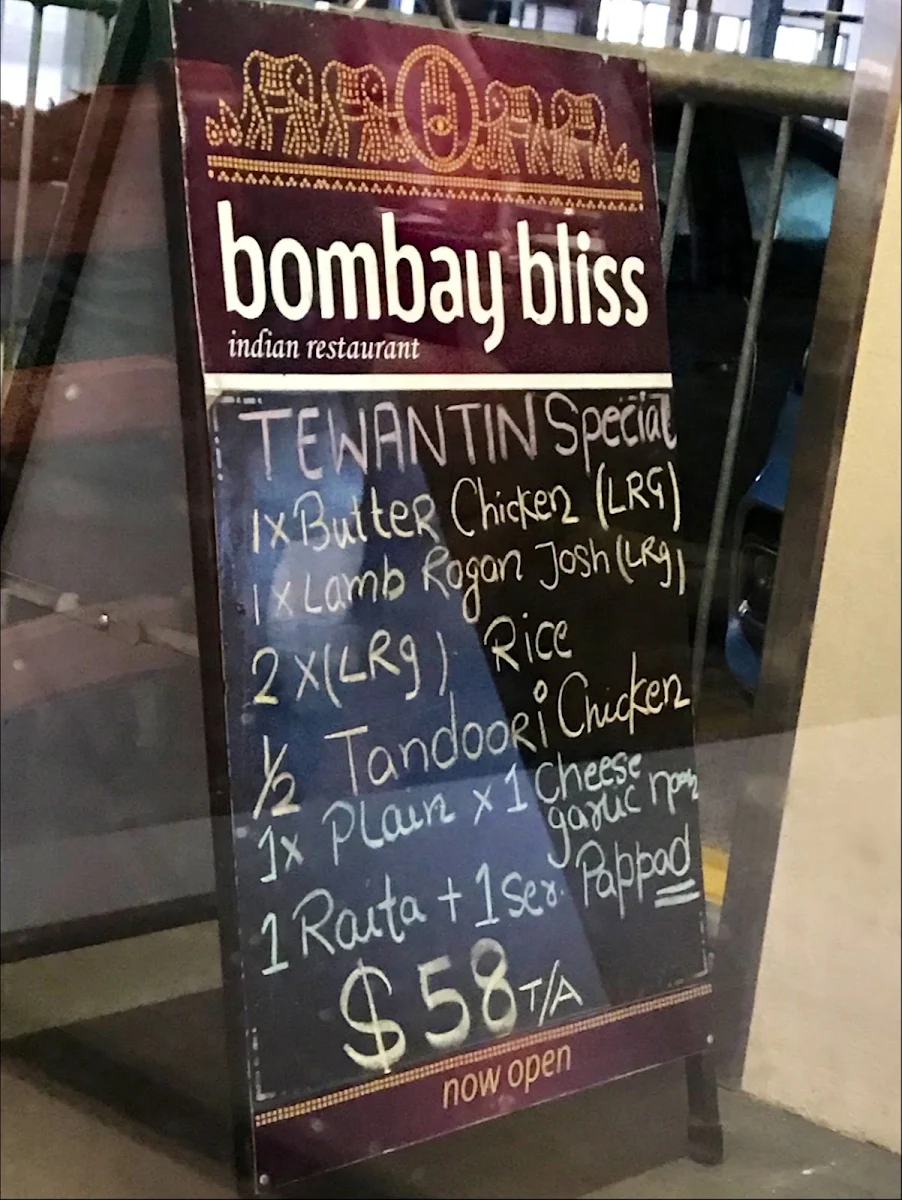 bombay bliss
indian restaurant
TEWANTIN Special
1x Butter Chicken (LRG)
1x Lamb Rogan Josh (LRg)
2 x (LRg) Rice
1/2 Tandoori Chicken
1x Plain x 1 Cheese
garlic naan
1 Raita + 1 Ser. Pappad
$58 T/A
now open